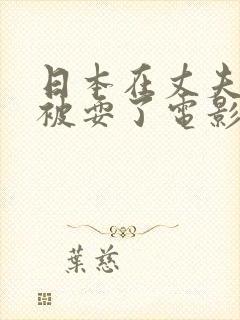 日本在丈夫
被耍了電影
葉慈